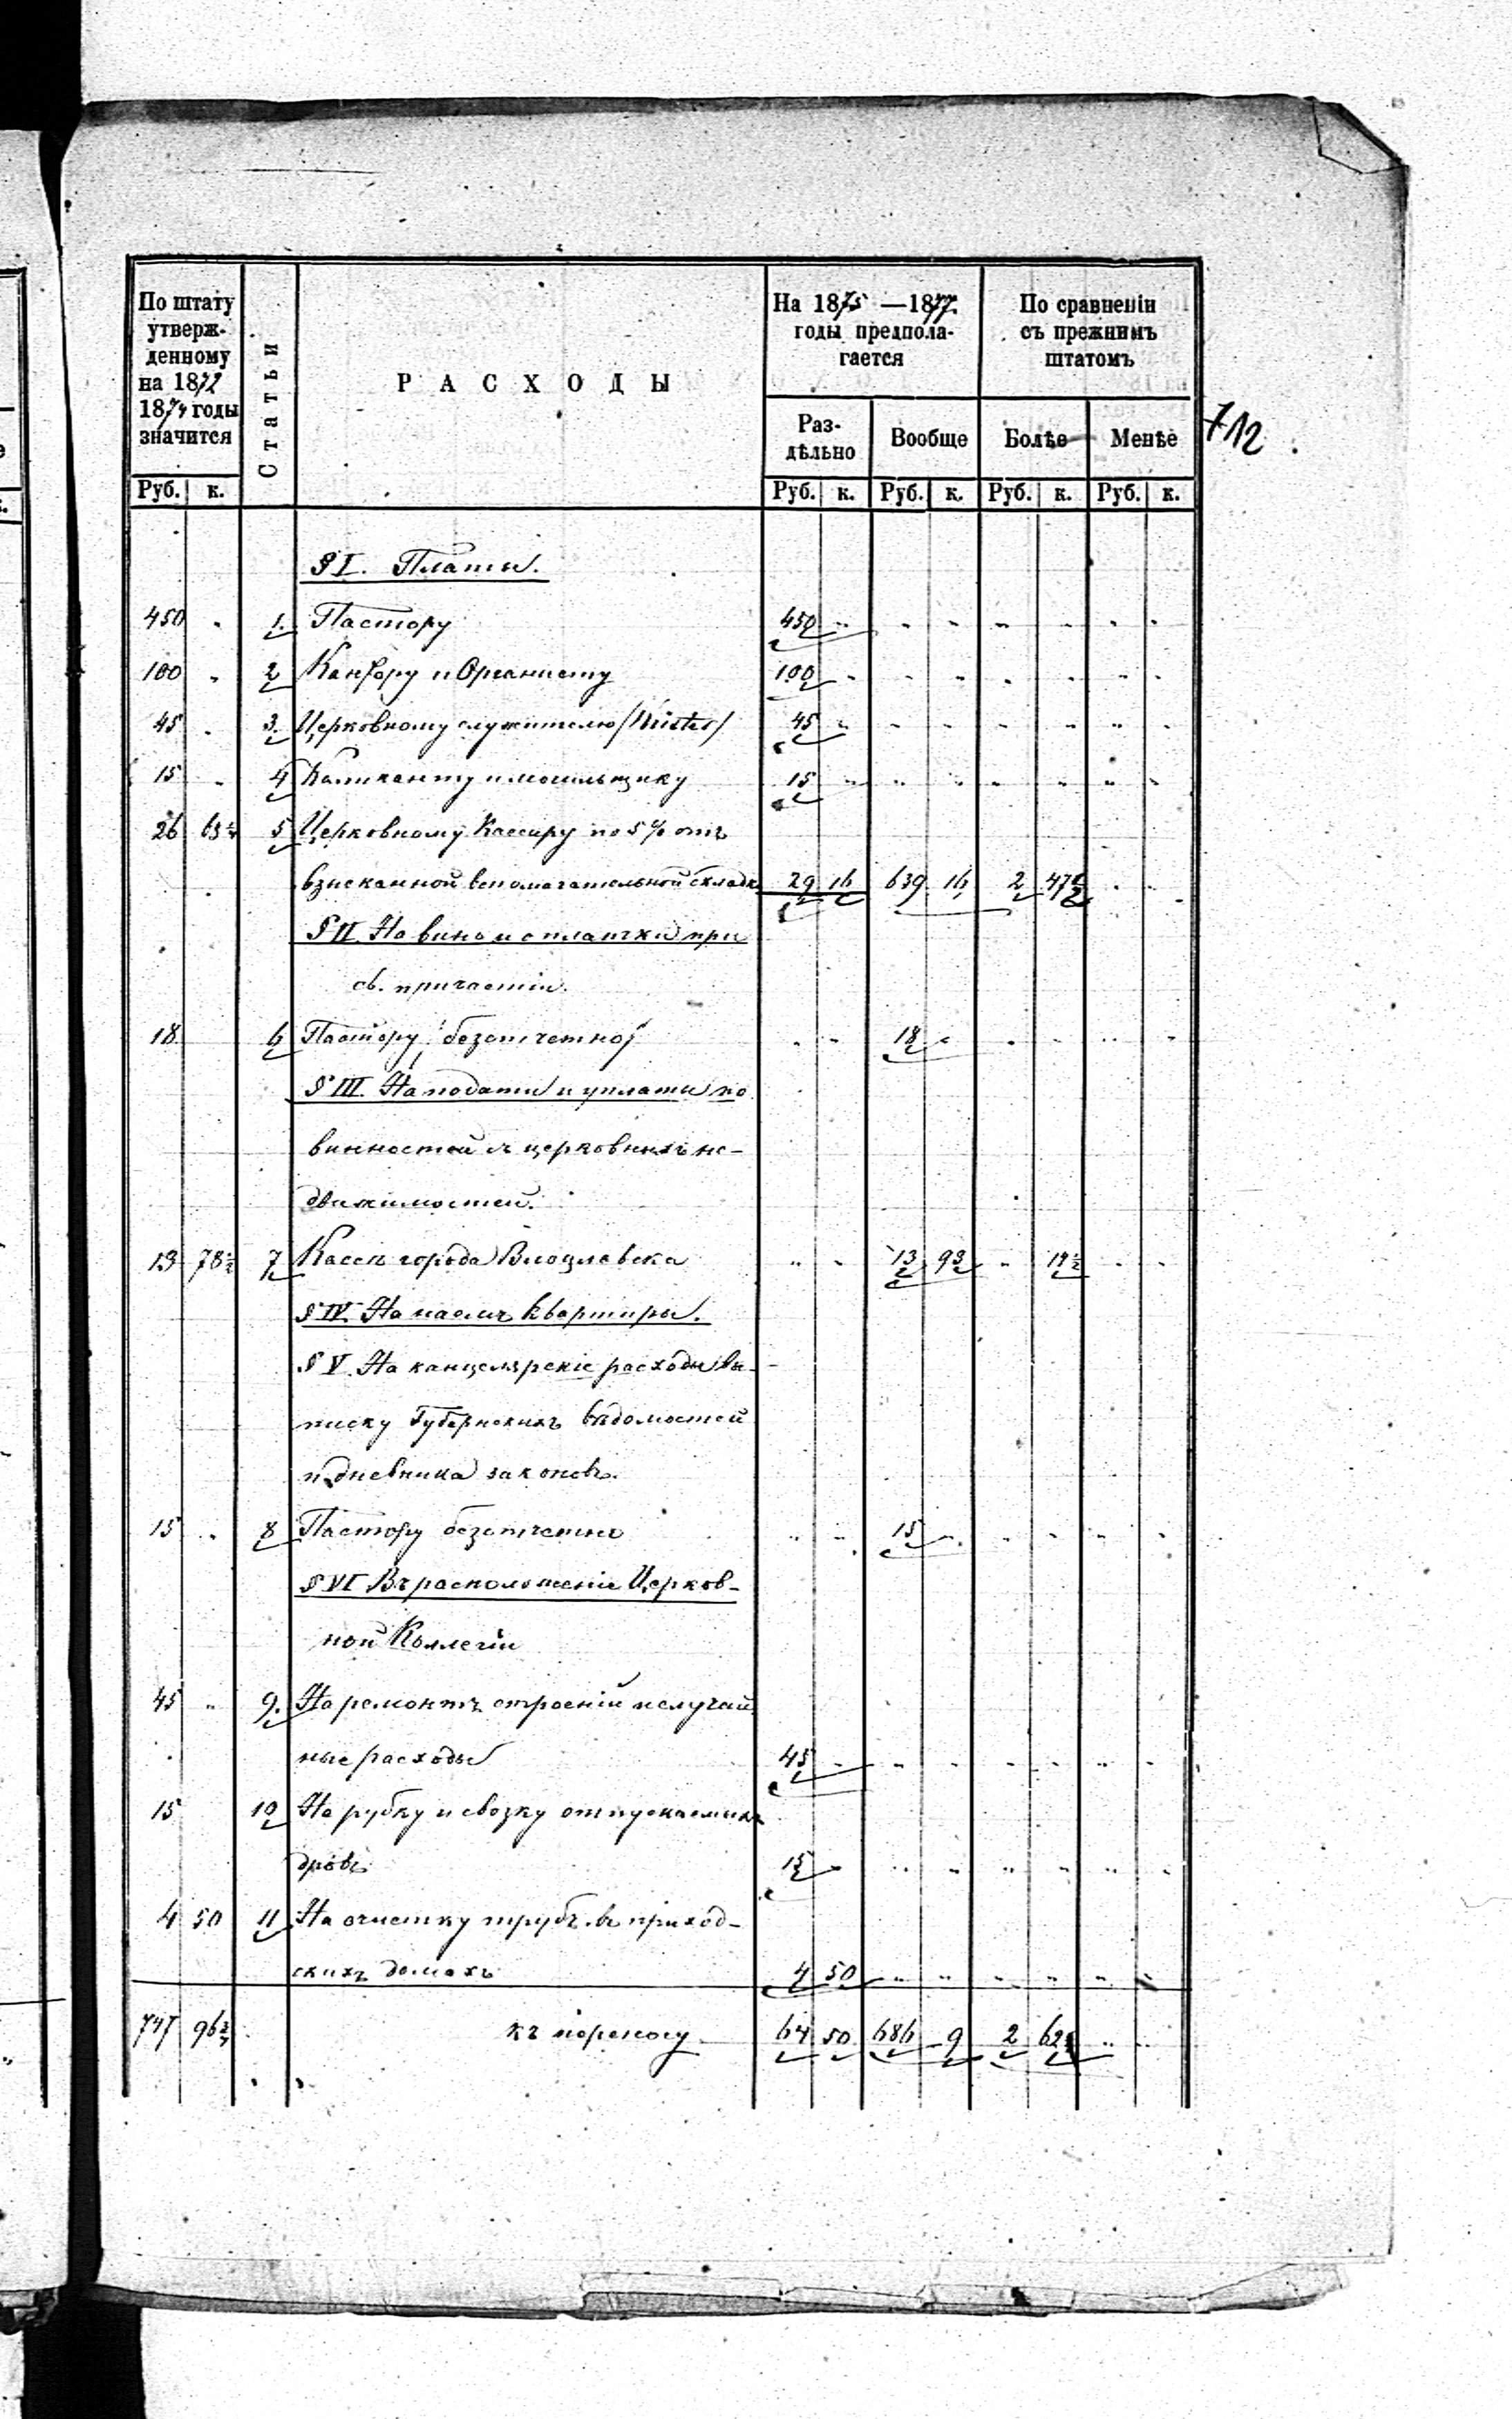 По штату утверж-денному на 1872 1874 годы значится
Статьи
РАСХОДЫ
На 1875—1877 годы предпола-гается
По сравненіи съ прежнимъ штатомъ
712
Раз-дѣльно Вообще Болѣе Менѣе
Руб. к. Руб. к. Руб. к. Руб. к. Руб. к.
§ I. Платы.
450 " 1. Пастору 450 " " " " " " "
100 " 2 Кантору и Органисту 100 " " " " " " "
45 " 3. Церковному служителю /Küster/ 45 " " " " " " "
15 " 4 Каликанту и могильщику 15 " " " " " " "
26 5 Церковному Кассиру по 5% отъ
взысканной вспомагательной складк 29 16 639 16 2 " "
§ II. На вино и оплатки при
св. причастіи.
18 6 Пастору /безотчетно/ " " 18 " " " " "
§ III. На подати и уплаты по
винностей съ церковныхъ не-
движимостей.
13 78½ 7 Кассѣ города Влоцлавска " " 13 93 " 14½ " "
§ IV. На наемъ квартиры.
§ V. На канцелярскіе расходы вы-
писку Губернскихъ вѣдомостей
и дневника законовъ.
15 " 8 Пастору безотчетно " " 15 " " " " "
§ VI Въ расположеніе Церков-
ной Коллегіи
45 " 9. На ремонтъ строеній и случай
ные расходы 45 " " " " " " "
15 10 На рубку и свозку отпускаемыхъ
дровъ. 15 " " " " " " "
4 50 11 На очистку трубъ въ приход-
скихъ домахъ 4 50 " " " " " "
747 къ переносу 64 50 686 9 2 " "